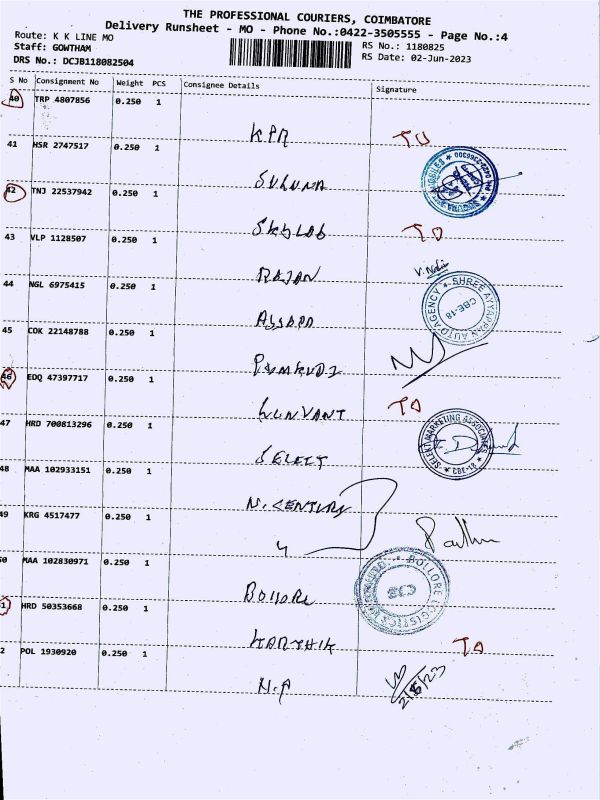 THE PROFESSIONAL COURIERS, COIMBATORE
Delivery Runsheet - MO - Phone No.:0422-3505555 - Page No.:4
Route: K K LINE MO
Staff: GOWTHAM
DRS No.: DCJB118082504
RS No.: 1180825
RS Date: 02-Jun-2023
S No Consignment No Weight PCS Consignee Details Signature
40 TRP 4807856 0.250 1 KPM TO
41 HSR 2747517 0.250 1 SUGUNA
42 TNJ 22537942 0.250 1 SKYLAB TO
43 VLP 1128507 0.250 1 RAJAN
44 NGL 6975415 0.250 1 SHREE AYYAPPAN AUTO AGENCY CBE-18
45 COK 22148788 0.250 1
46 EDQ 47397717 0.250 1 GUNVANT TO
47 HRD 700813296 0.250 1 SELECT SELECT MARKETING ASSOCIATES CBE-18
48 MAA 102933151 0.250 1 N. CENTURY
49 KRG 4517477 0.250 1 4
50 MAA 102830971 0.250 1 BOLLORE BOLLORE LOGISTICS
51 HRD 50353668 0.250 1 KARTHIK TO
2 POL 1930920 0.250 1 N.A 2/6/23